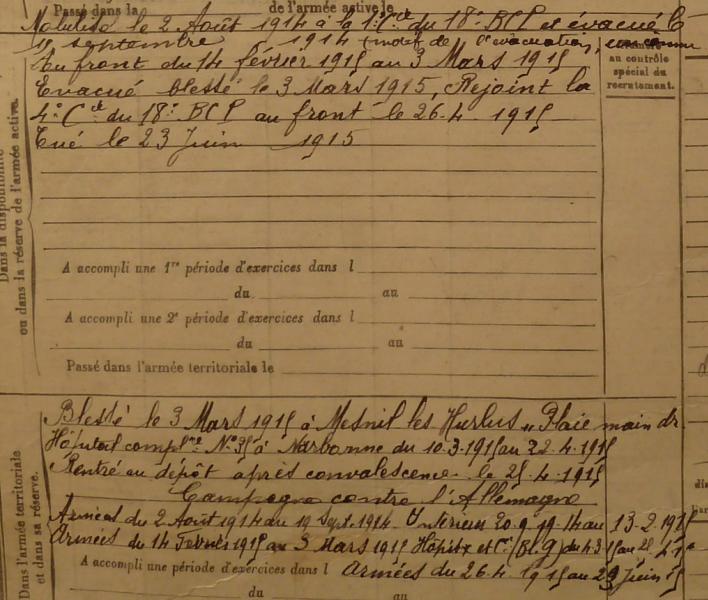 Passé dans la de l'armée active le
Mobilisé le 2 Août 1914 à la 1e Cie du 18e BCP et évacué le
19 septembre 1914 (motif de l'évacuation, inconnu
Au front du 14 février 1915 au 3 Mars 1915
au contrôle
spécial du
recrutement.
Evacué blessé le 3 Mars 1915, Rejoint la
4e Cie du 18e BCP au front le 26-4-1915
Tué le 23 Juin 1915
Dans la disponibilité
ou dans la réserve de l'armée active.
A accompli une 1re période d'exercices dans l
du au
A accompli une 2e période d'exercices dans l
du au
Passé dans l'armée territoriale le
Dans l'armée territoriale
et dans sa réserve.
Blessé le 3 Mars 1915 à Mesnil les Hurlus " Plaie main dr
Hôpital complre No 35 à Narbonne du 10-3-1915 au 22-4-1915
Rentré au dépôt après convalescence le 25-4-1915
Campagne contre l'Allemagne
Armées du 2 Août 1914 au 19 Sept. 1914 Intérieur 20-9 1914 au 13-2-1915
Armées du 14 Février 1915 au 3 Mars 1915 Hôpitx et Cce (Bl. G) du 4 3 15 au 25 4 15
A accompli une période d'exercices dans l Armées du 26-4 1915 au 23 Juin 15
du au